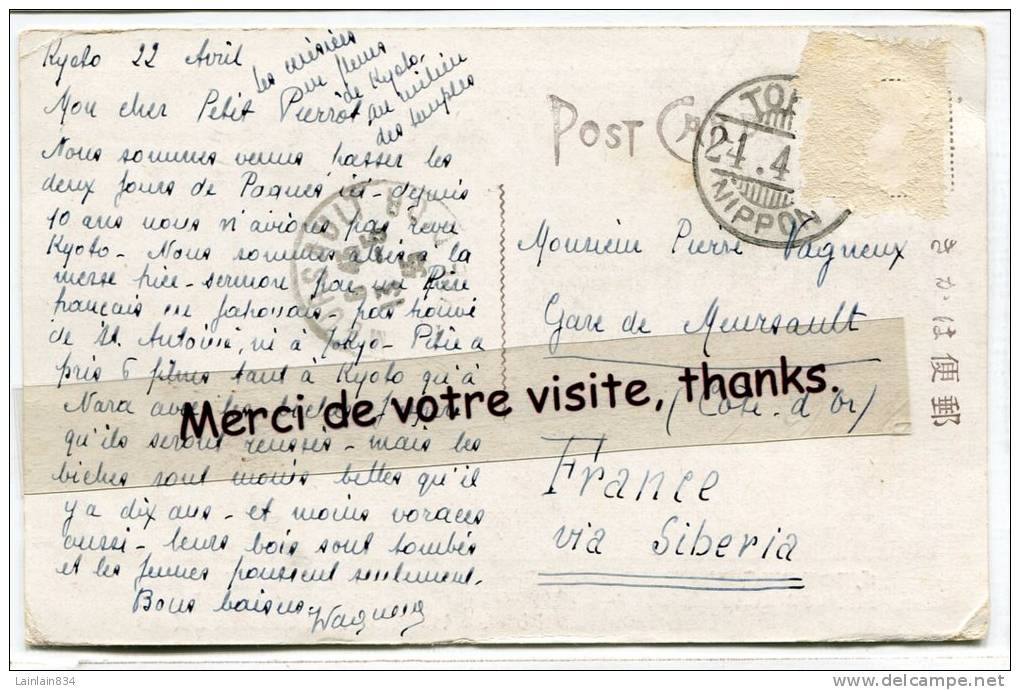 Kyoto 22 Avril
les cerisiers
en fleurs
de Kyoto,
au milieu
des temples
Mon cher Petit Pierrot,
Nous sommes venus passer les
deux jours de Paques ici - depuis
10 ans nous n'avions pas revu
Kyoto - Nous sommes allés à la
messe hier - sermon par un Père
français en japonais - pas trouvé
de St. Antoine, ni à Tokyo -
pris 6 films tant à Kyoto qu'à
Nara avec les biches
qu'ils seront réussis - mais les
biches sont moins bettes qu'il
y a dix ans - et moins voraces
aussi - leurs bois sont tombés
et les jeunes poussent seulement.
Bons baisers
POST CARD
TO
24.4
NIPPON
Monsieur Pierre Vagneux
Gare de Meursault
(Côte-d'Or)
France
via Siberia
郵便はかき
Merci de votre visite, thanks.
Lainlain834
delcampe.net